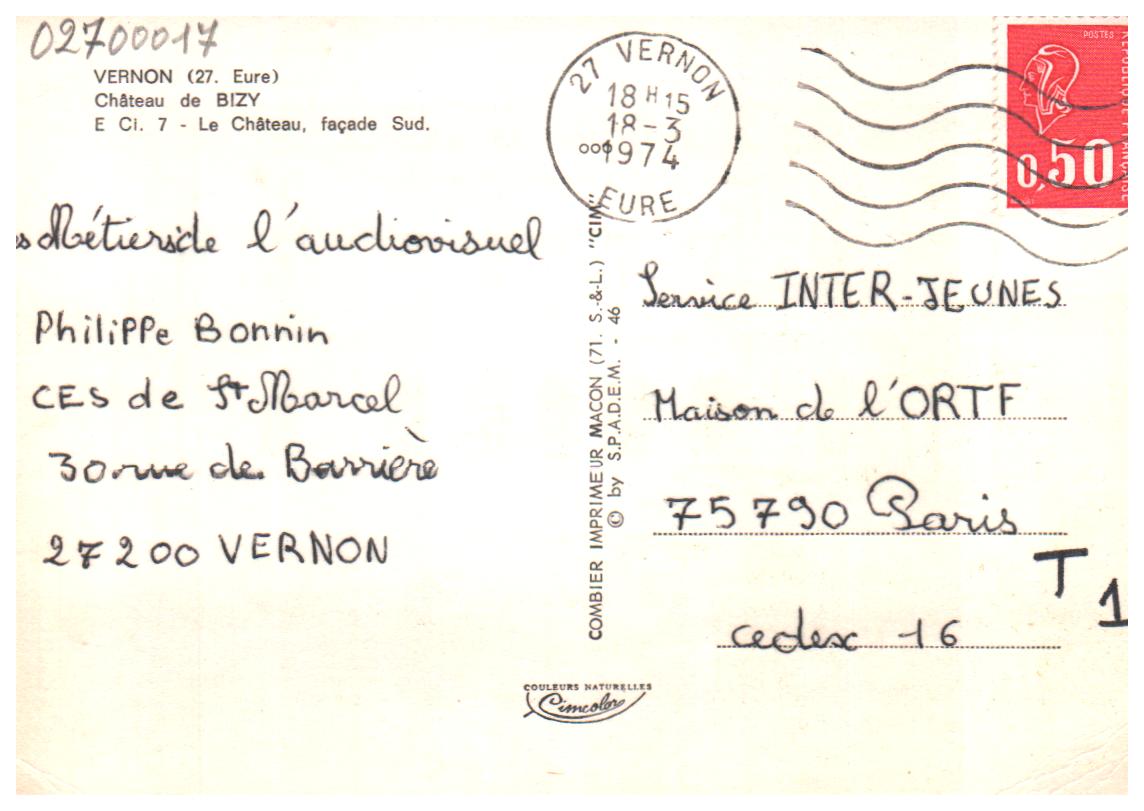 02700017
VERNON (27. Eure)
Château de BIZY
E Ci. 7 - Le Château, façade Sud.
s Métiers de l'audiovisuel
Philippe Bonnin
CES de St Marcel
30 rue de Barrière
27200 VERNON
COMBIER IMPRIMEUR MACON (71. S.-&-L.) "CIM"
© by S.P.A.D.E.M. - 46
COULEURS NATURELLES
Cimcolor
27 VERNON
18 H 15
18-3
1974
EURE
POSTES
REPUBLIQUE FRANÇAISE
0,50
Service INTER-JEUNES
Maison de l'ORTF
75790 Paris
cedex 16
T 1